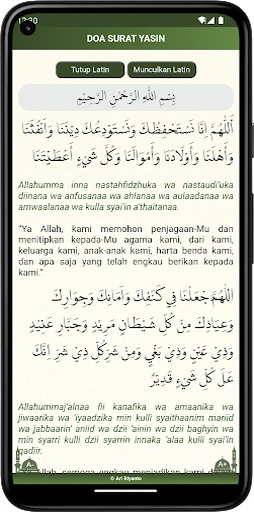 12:30
DOA SURAT YASIN
Tutup Latin
Munculkan Latin
بِسْمِ اللَّهِ الرَّحْمَنِ الرَّحِيْمِ
أَللَّهُمَّ إِنَّا نَسْتَحْفِظُكَ وَنَسْتَوْدِعُكَ دِيْنَنَا وَأَنْفُسَنَا
وَأَهْلَنَا وَأَوْلَادَنَا وَأَمْوَالَنَا وَكُلَّ شَيْءٍ أَعْطَيْتَنَا
Allahumma inna nastahfidzhuka wa nastaudi'uka
diinana wa anfusanaa wa ahlanaa wa aulaadanaa wa
amwaalanaa wa kulla syai'in a'thaitanaa.
"Ya Allah, kami memohon penjagaan-Mu dan
menitipkan kepada-Mu agama kami, dari kami,
keluarga kami, anak-anak kami, harta benda kami,
dan apa saja yang telah engkau berikan kepada
kami."
اَللَّهُمَّ جْعَلْنَا فِيْ كَنَفِكَ وَأَمَانِكَ وَجِوَارِكَ
وَعِيَادِكَ مِنْ كُلِّ شَيْطَانٍ مَرِيْدٍ وَجَبَّارٍ عَنِيْدٍ
وَذِيْ عَيْنٍ وَذِيْ بَغْيٍ وَمِنْ شَرِّكُلِّ ذِيْ شَرٍّ اِنَّكَ
عَلَى كُلِّ شَيْءٍ قَدِيْرٌ
Allahummaj'alnaa fii kanafika wa amaanika wa
jiwaarika wa 'iyaadzika min kulli syaithaanim mariid
wa jabbaarin' aniid wa dzii 'ainin wa dzii baghyin wa
min syarri kulli dzii syarrin innaka 'alaa kulli syai'in
qadiir.
semoga engkau menjadikan kami
© Ari Riyanto